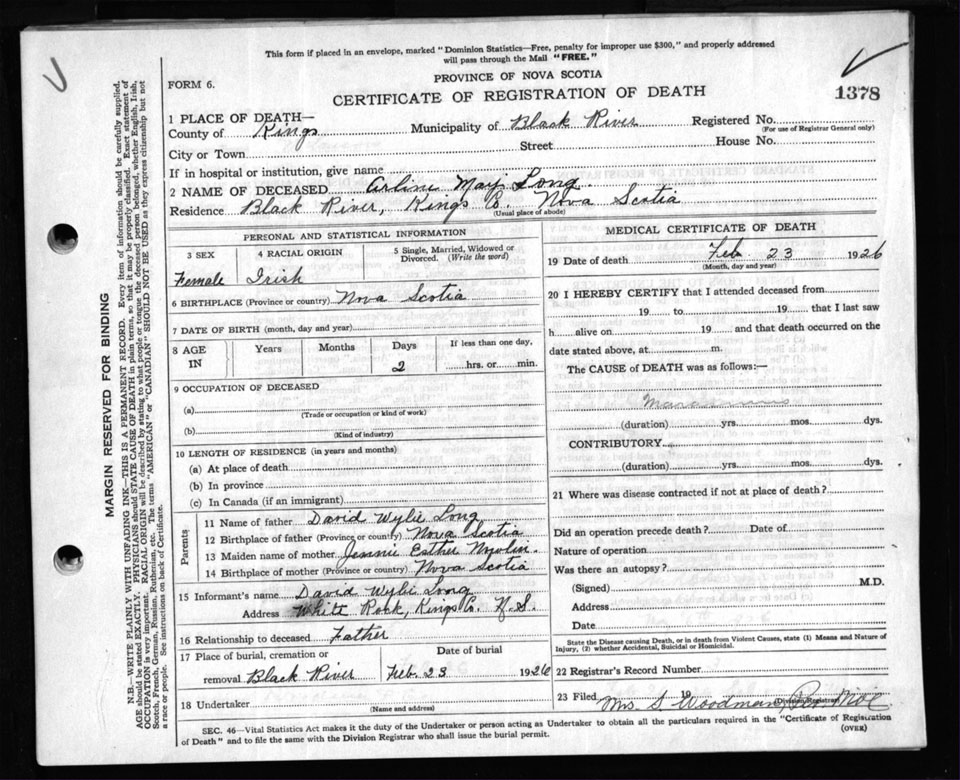 This form if placed in an envelope, marked "Dominion Statistics—Free, penalty for improper use $300," and properly addressed
will pass through the Mail "FREE."
FORM 6.
PROVINCE OF NOVA SCOTIA
CERTIFICATE OF REGISTRATION OF DEATH
1378
1 PLACE OF DEATH—
County of Kings Municipality of Black River Registered No.
(For use of Registrar General only)
City or Town Street House No.
If in hospital or institution, give name
2 NAME OF DECEASED Arline May Long.
Residence Black River, Kings Co. Nova Scotia
(Usual place of abode)
PERSONAL AND STATISTICAL INFORMATION
3 SEX 4 RACIAL ORIGIN 5 Single, Married, Widowed or
Divorced. (Write the word)
Female Irish
6 BIRTHPLACE (Province or country) Nova Scotia
7 DATE OF BIRTH (month, day and year)
8 AGE IN Years Months Days If less than one day,
2 hrs. or min.
9 OCCUPATION OF DECEASED
(a)
(Trade or occupation or kind of work)
(b)
(Kind of industry)
10 LENGTH OF RESIDENCE (in years and months)
(a) At place of death
(b) In province
(c) In Canada (if an immigrant)
Parents
11 Name of father David Wylie Long
12 Birthplace of father (Province or country) Nova Scotia
13 Maiden name of mother Jennie Esther Nowlin.
14 Birthplace of mother (Province or country) Nova Scotia
15 Informant's name David Wylie Long
Address White Rock, Kings Co. N.S.
16 Relationship to deceased Father
17 Place of burial, cremation or Date of burial
removal Black River Feb. 23 1926
18 Undertaker
(Name and address)
MEDICAL CERTIFICATE OF DEATH
19 Date of death Feb 23 1926
(Month, day and year)
20 I HEREBY CERTIFY that I attended deceased from
19 to 19 that I last saw
h alive on 19 and that death occurred on the
date stated above, at m.
The CAUSE of DEATH was as follows:—
(duration) yrs. mos. dys.
CONTRIBUTORY
(duration) yrs. mos. dys.
21 Where was disease contracted if not at place of death?
Did an operation precede death? Date of
Nature of operation
Was there an autopsy?
(Signed) M.D.
Address
Date
State the Disease causing Death, or in death from Violent Causes, state (1) Means and Nature of
Injury, (2) whether Accidental, Suicidal or Homicidal.
22 Registrar's Record Number
23 Filed 19 Mrs S Woodman
(Division Registrar)
SEC. 46—Vital Statistics Act makes it the duty of the Undertaker or person acting as Undertaker to obtain all the particulars required in the "Certificate of Registration
of Death" and to file the same with the Division Registrar who shall issue the burial permit.
(OVER)
MARGIN RESERVED FOR BINDING
N.B.—WRITE PLAINLY WITH UNFADING INK—THIS IS A PERMANENT RECORD. Every item of information should be carefully supplied.
AGE should be stated EXACTLY. PHYSICIANS should STATE CAUSE OF DEATH in plain terms, so that it may be properly classified. Exact statement of
OCCUPATION is very important. RACIAL ORIGIN will be described by stating to what people or tongue the deceased person belonged, whether English, Irish,
Scotch, French, German, Russian, Ruthenian, etc. The terms "AMERICAN" or "CANADIAN" SHOULD NOT BE USED as they express citizenship but not
a race or people. See instructions on back of Certificate.